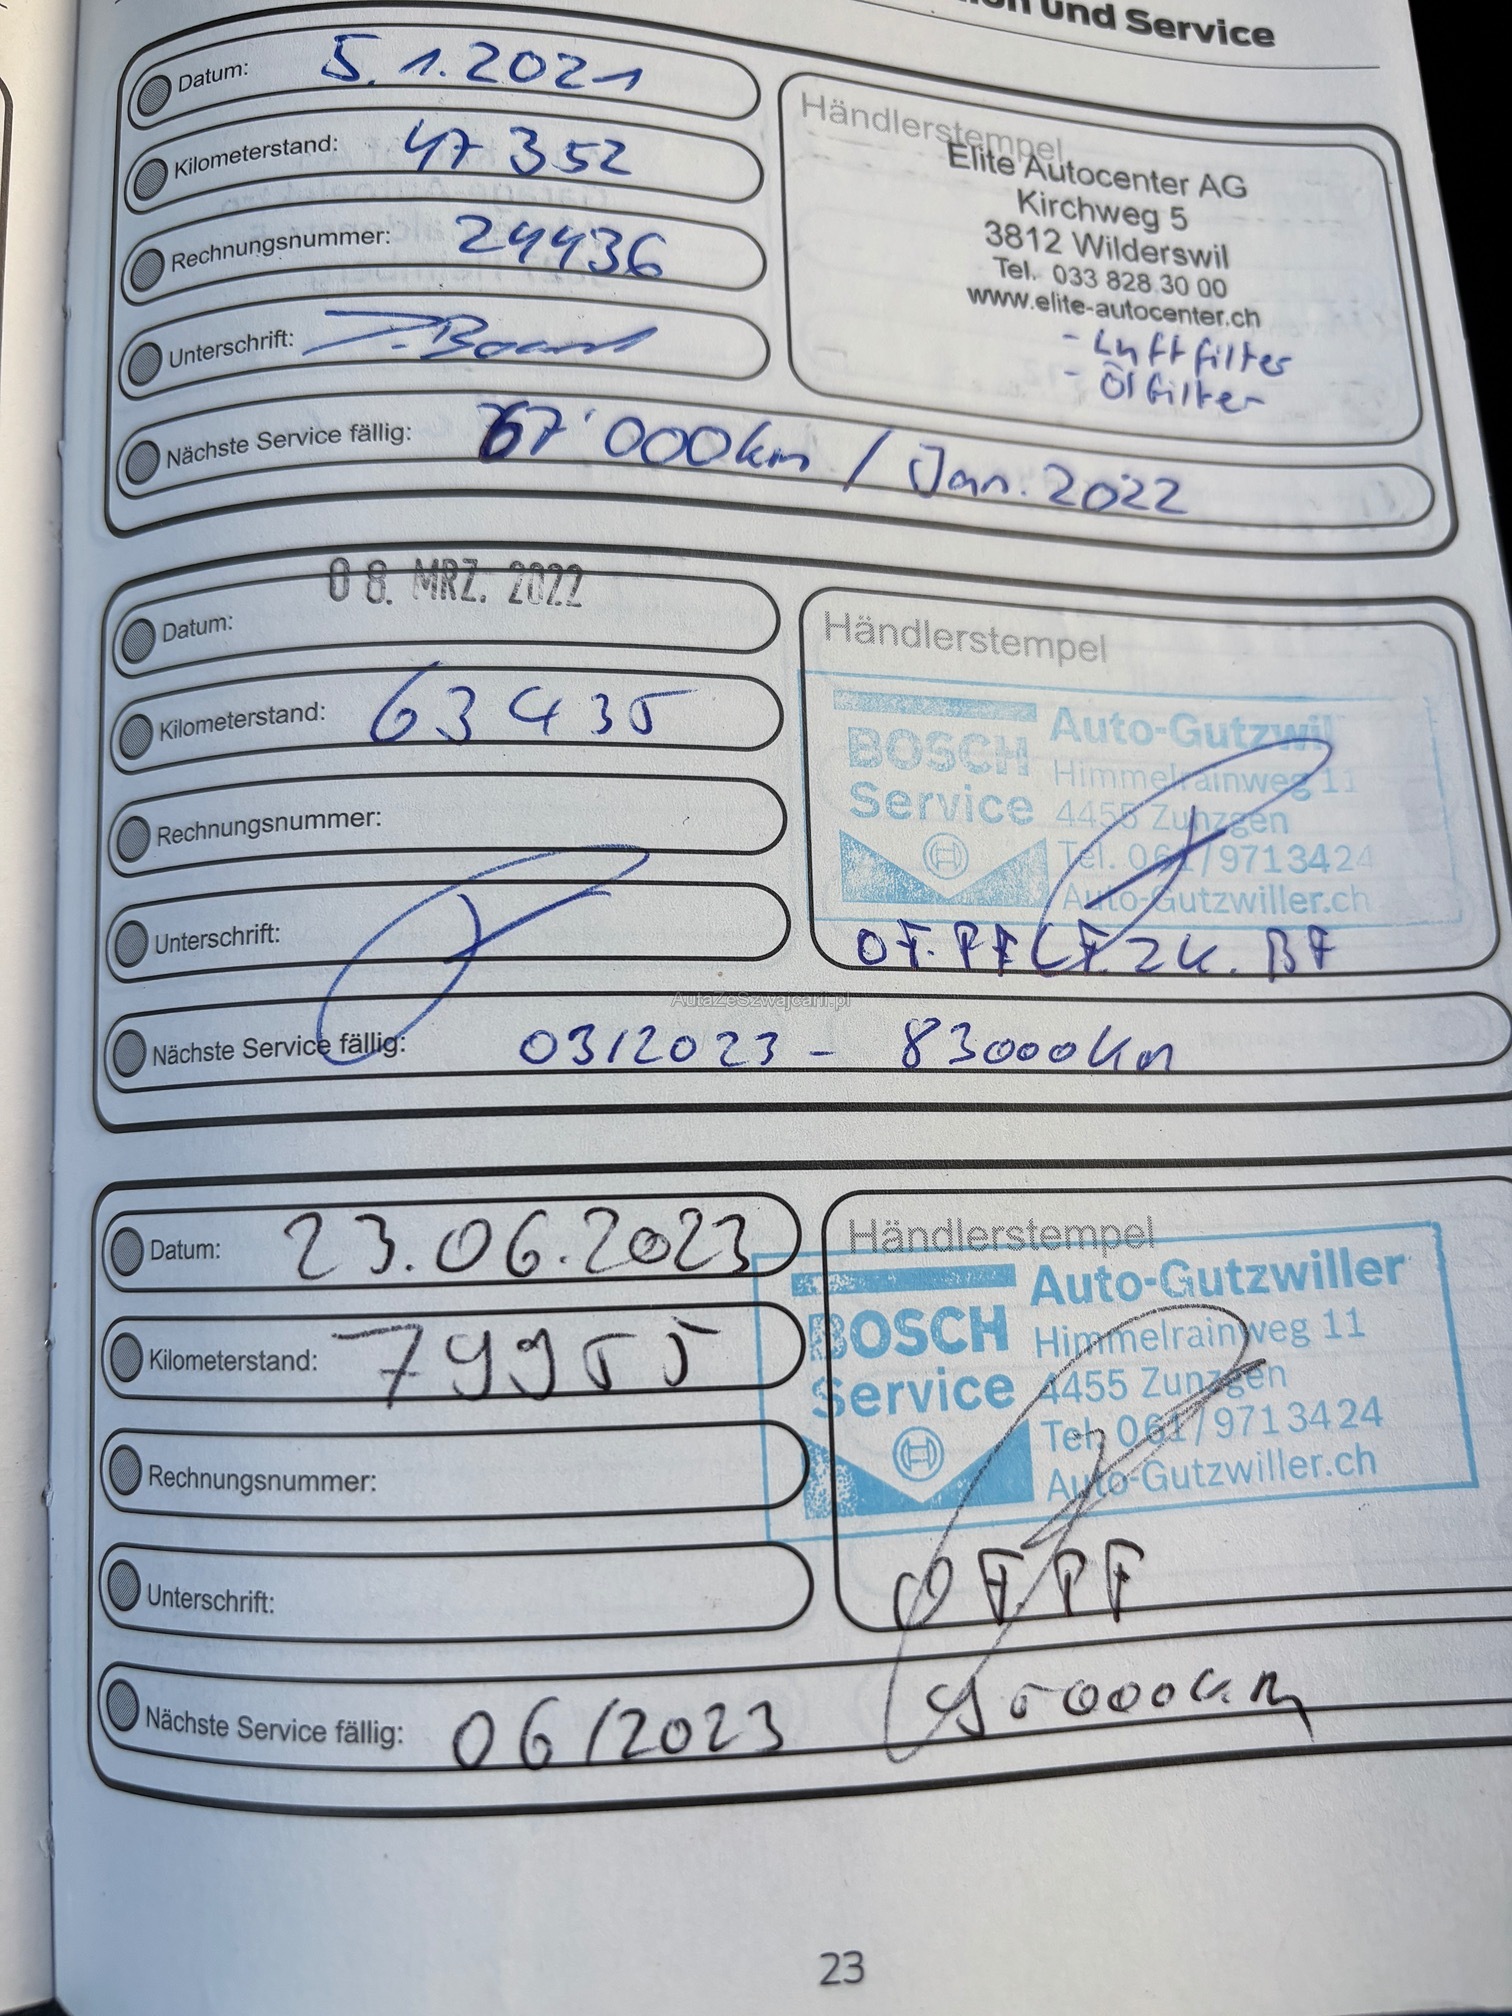 und Service
Datum: 5.1.2021
Kilometerstand: 47 352
Rechnungsnummer: 24436
Unterschrift:
Nächste Service fällig: 67'000km / Jan. 2022
Händlerstempel
Elite Autocenter AG
Kirchweg 5
3812 Wilderswil
Tel. 033 828 30 00
www.elite-autocenter.ch
- Luftfilter
- Ölfilter
Datum: 08. MRZ. 2022
Kilometerstand: 63435
Rechnungsnummer:
Unterschrift:
Nächste Service fällig: 03/2023 - 83000km
Händlerstempel
BOSCH
Service
Auto-Gutzwil
Himmelrainweg 11
4455 Zunzgen
Tel. 061/9713424
Auto-Gutzwiller.ch
OF. PF LF. ZK. BF
AutaZeSzwajcarii.pl
Datum: 23.06.2023
Kilometerstand: 79955
Rechnungsnummer:
Unterschrift:
Nächste Service fällig: 06/2023 95000km
Händlerstempel
BOSCH
Service
Auto-Gutzwiller
Himmelrainweg 11
4455 Zunzgen
Tel. 061/9713424
Auto-Gutzwiller.ch
OF. PF
23